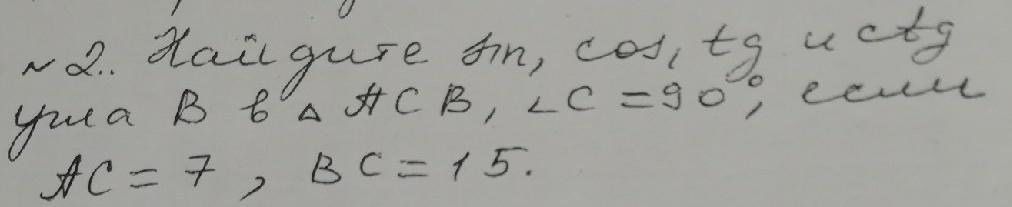 №2. Найдите sin, cos, tg и ctg
угла B в △ACB, ∠C=90°, если
AC=7, BC=15.